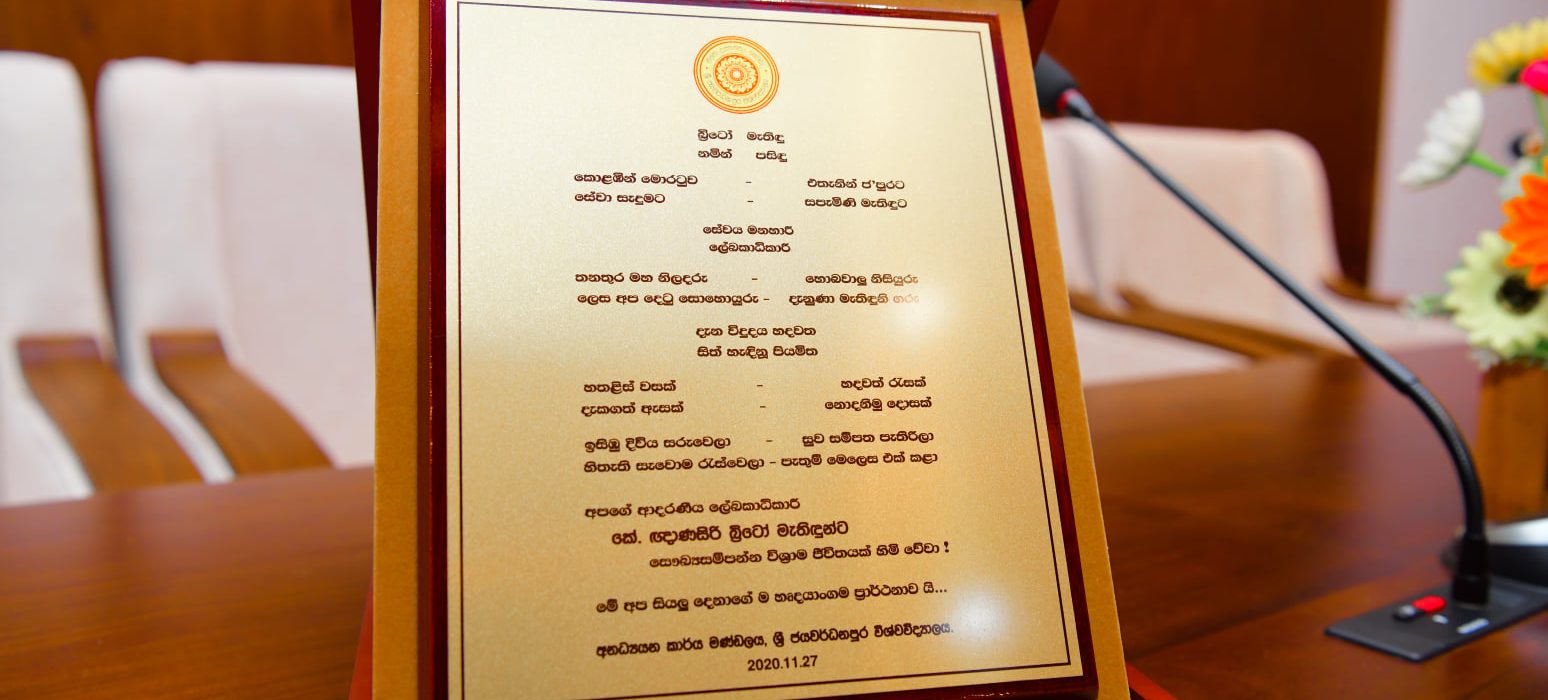 බ්‍රිටෝ මැතිඳු
නමින් පසිඳු
කොළඹින් මොරටුව - එතැනින් ජ'පුරට
සේවා සැදුමට - සපැමිණි මැතිඳුට
සේවය මනහාරී
ලේඛකාධිකාරී
තනතුර මහ නිලදරු - හොබවාලු නිසියුරු
ලෙස අප දෙටු සොහොයුරු - දැනුණා මැතිඳුනි ගරු
දැන විදුදය හදවත
සිත් හැඳිනූ පියමිත
හතළිස් වසක් - හදවත් රැසක්
දැකගත් ඇසක් - නොදනිමු දොසක්
ඉසිඹු දිවිය සරුවෙලා - සුව සම්පත පැතිරිලා
හිතැති සැවොම රැස්වෙලා - පැතුම් මෙලෙස එක් කළා
අපගේ ආදරණීය ලේඛකාධිකාරී
කේ. ඥාණසිරි බ්‍රිටෝ මැතිඳුන්ට
සෞඛ්‍යසම්පන්න විශ්‍රාම ජීවිතයක් හිමි වේවා !
මේ අප සියලු දෙනාගේ ම හෘදයාංගම ප්‍රාර්ථනාව යි...
අනධ්‍යයන කාර්ය මණ්ඩලය, ශ්‍රී ජයවර්ධනපුර විශ්වවිද්‍යාලය.
2020.11.27